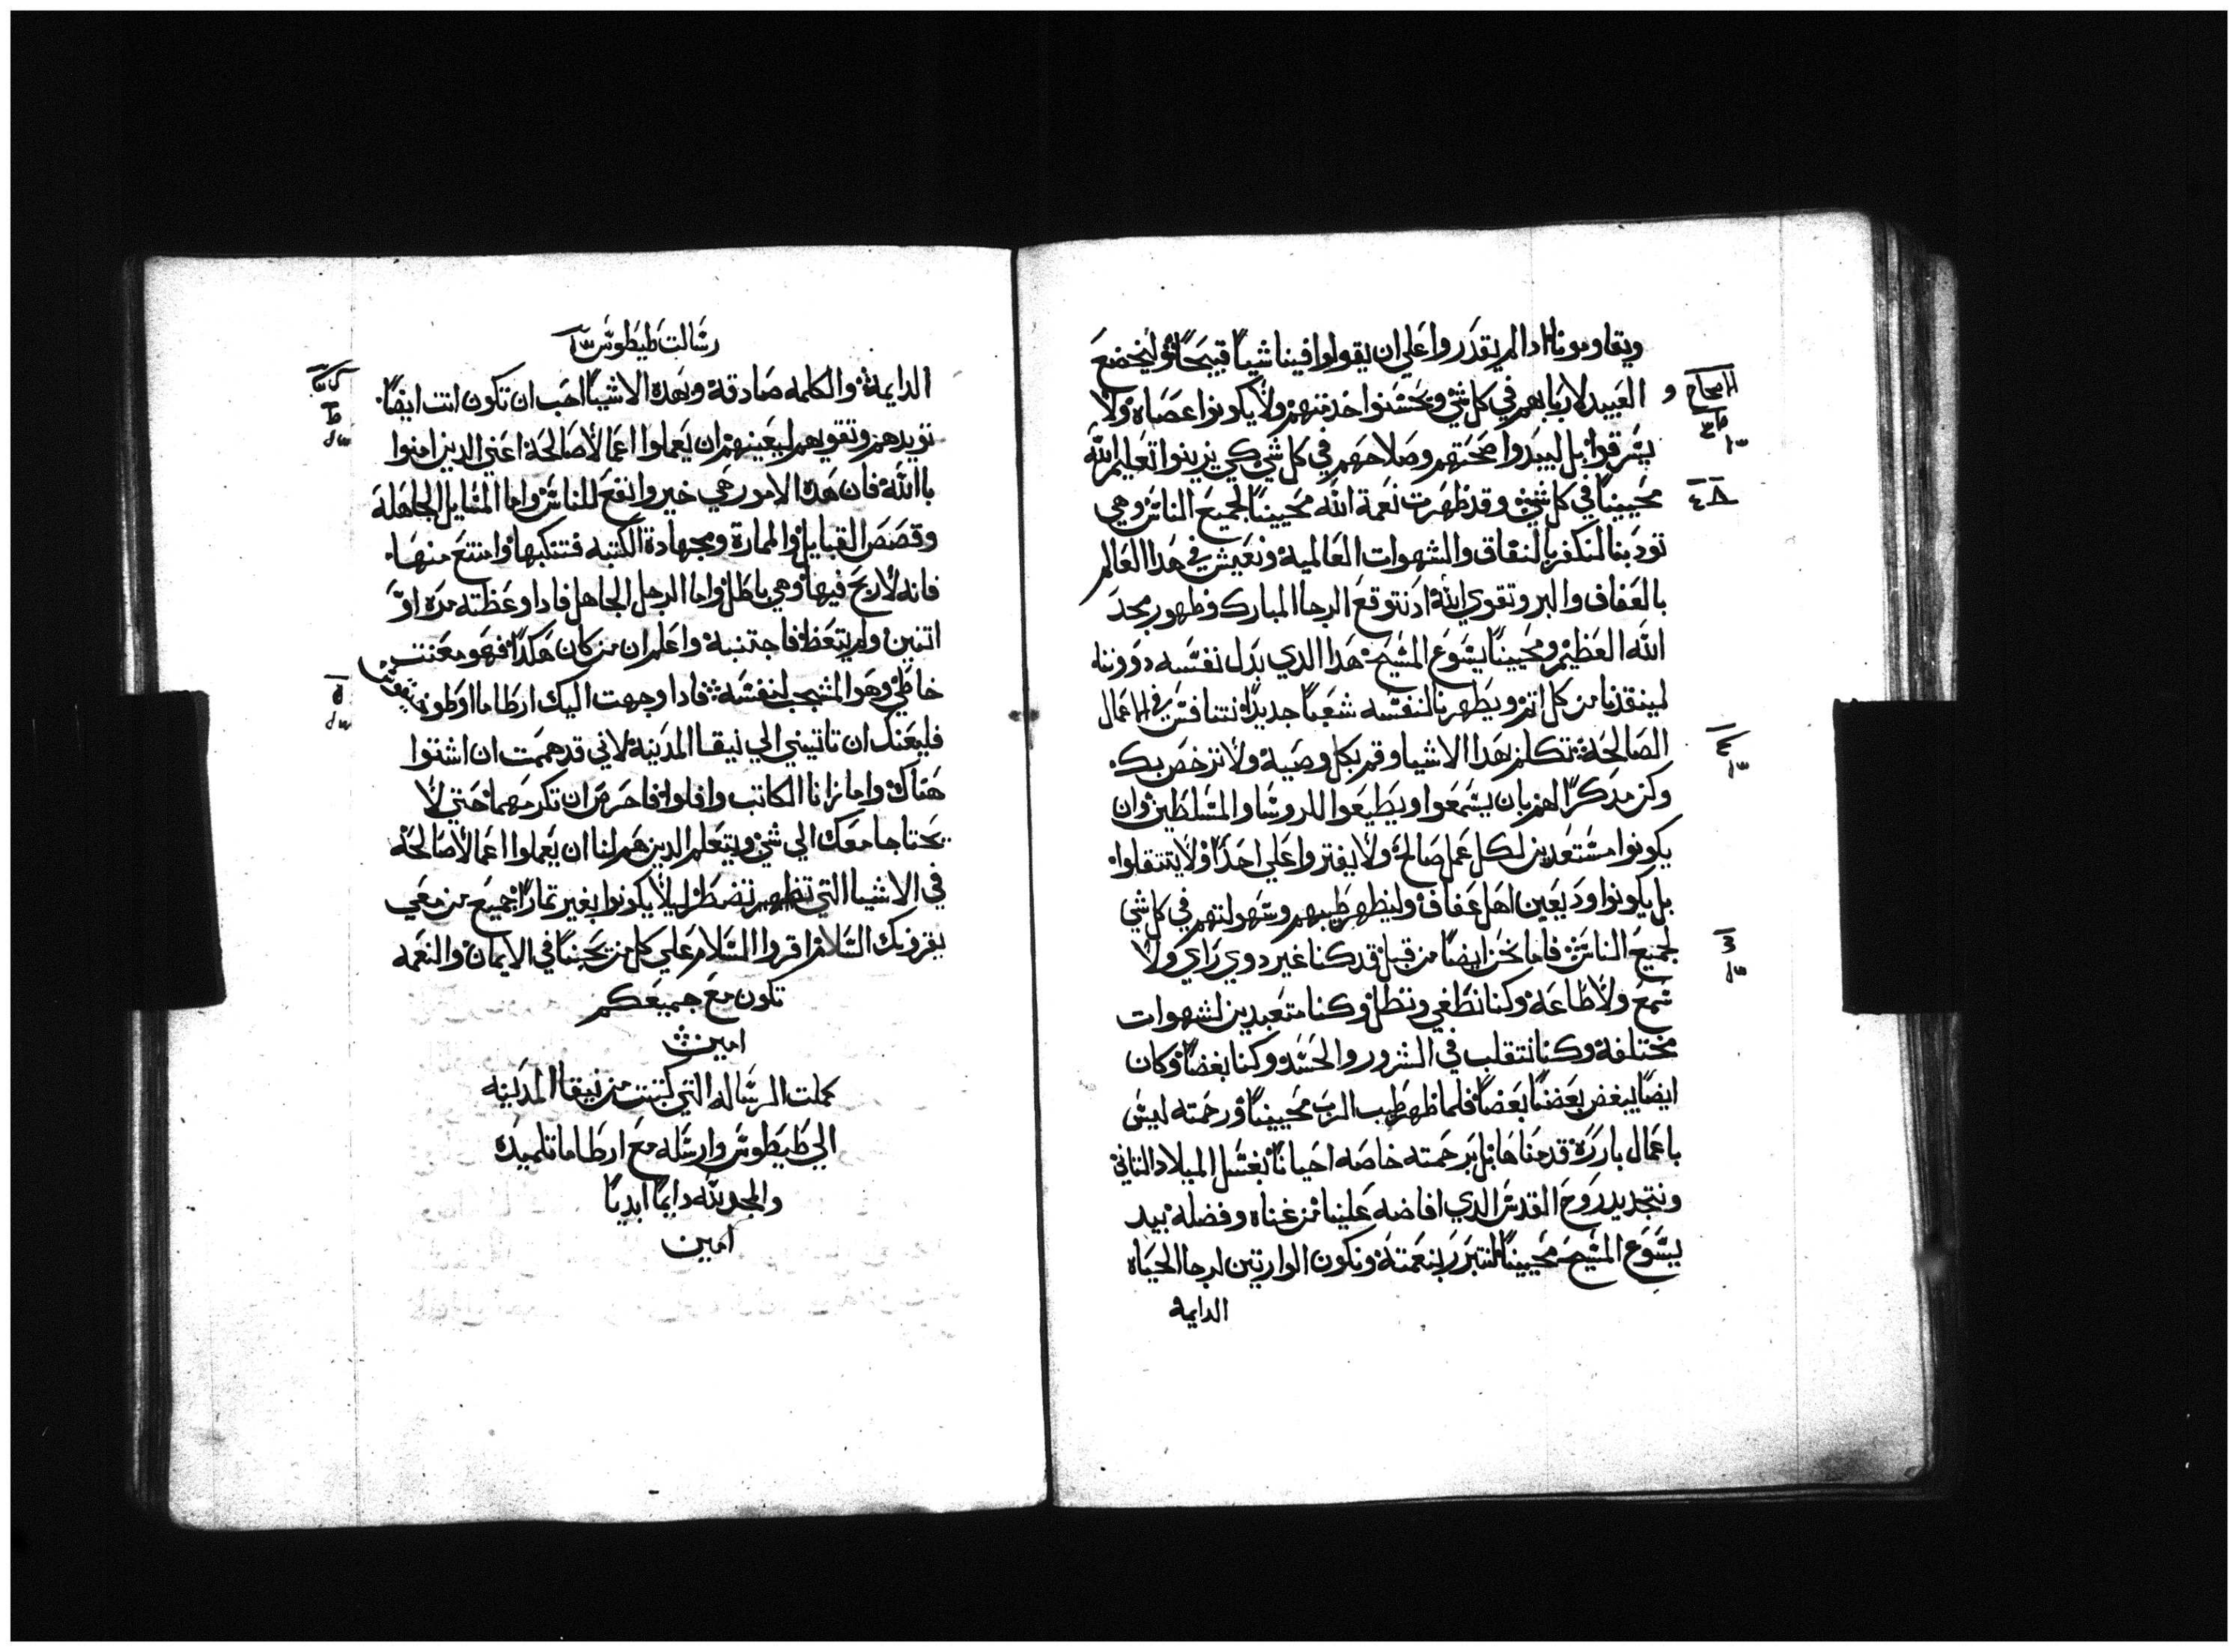 ويقاومونا اذا لم يقدروا علي ان يقولوا فينا شياً قبيحاً وليخضع
العبيد لاربابهم في كل شي ويحسنوا خدمتهم ولا يكونوا عصاه ولا
يسرقوا بل ليبدوا صحتهم وصلاحهم في كل شي كي يزينوا تعليم الله
محيينا في كل شي وقد ظهرت نعمة الله محيينا لجميع الناس وهي
تودبنا لنكفر بالنفاق والشهوات العالمية ونعيش في هدا العالم
بالعفاف والبر وتقوي الله اد نتوقع الرجا المبارك وظهور مجد
الله العظيم ومحيينا يسوع المسيح هدا الدي بدل نفسه دوننا
لينقدنا من كل اتم ويطهرنا لنفسه شعباً جديداً نتنافس في الاعمال
الصالحة تكلم بهدا الاشيا وقم بكل وصية ولا ترخص بك
وكن مدكراً لهم بان يسمعوا ويطيعوا للروسا والمسلطين وان
يكونوا مستعدين لكل عمل صالح ولا يفتروا علي احداً ولا يتنقلوا
بل يكونوا وديعين اهل عفاف وليظهر طيبهم وسهولتهم في كل شي
لجميع الناس فاما نحن ايضاً من قبل قد كنا غير دوي راي ولا
سمع ولا طاعة وكنا نطغي ونظل وكنا متعبدين لشهوات
مختلفة وكنا نتقلب في الشرور والحسد وكنا بغضاً وكان
ايضاً يبغض بعضنا بعضاً فلما ظهر طيب الرب محيينا ورحمته ليس
باعمال بارره قدمناها بل برحمته خاصه احيانا بغسل الميلاد التاني
وتجديد روح القدس الدي افاضه علينا من غناه وفضله بيد
يسوع المسيح محيينا لنتبرر بنعمته ونكون الوارتين لرجا الحياه
الدايمه
رسالت طيطوس
الدايمة والكلمه صادقة وبهده الاشيا احب ان تكون انت ايضاً
تويدهم وتقويهم ليعينهم ان يعملوا اعمالا صالحة اعني الدين امنوا
باالله فان هده الامور هي خير وانفع للناس واما المسايل الجاهلة
وقصص القبايل والممارة ومجهادة الكتبه فتنكبها وامتنع منها
فانه لا ربح فيها وهي باطل واما الرجل الجاهل فادا وعظته مره او
اتنين ولم يتعظ فاجتنبه واعلم ان من كان هكدا فهو معنت
خاطي وهو المشجب لنفسه فادا وجهت اليك ارطاما او طونيقوس
فليعنك ان تاتيني الي نيقا المدينة لاني قد هممت ان اشتوا
هناك واما زانا الكاتب وافلوا فاحرص ان تكرمهما حتي لا
يحتاجا معك الي شي ويتعلم الدين هم لنا ان يعملوا اعمالا صالحة
في الاشيا التي تضطر ليلا يكونوا بغير تمار جميع من معي
يقرونك السلام اقروا السلام علي كل من يحبنا في الايمان والنعمه
تكون مع جميعكم
امين
كملت الرساله التي كتبت من نيقا المدينه
الي طيطوس وارسله مع ارطاما تلميده
والمجد لله دايماً ابدياً
امين